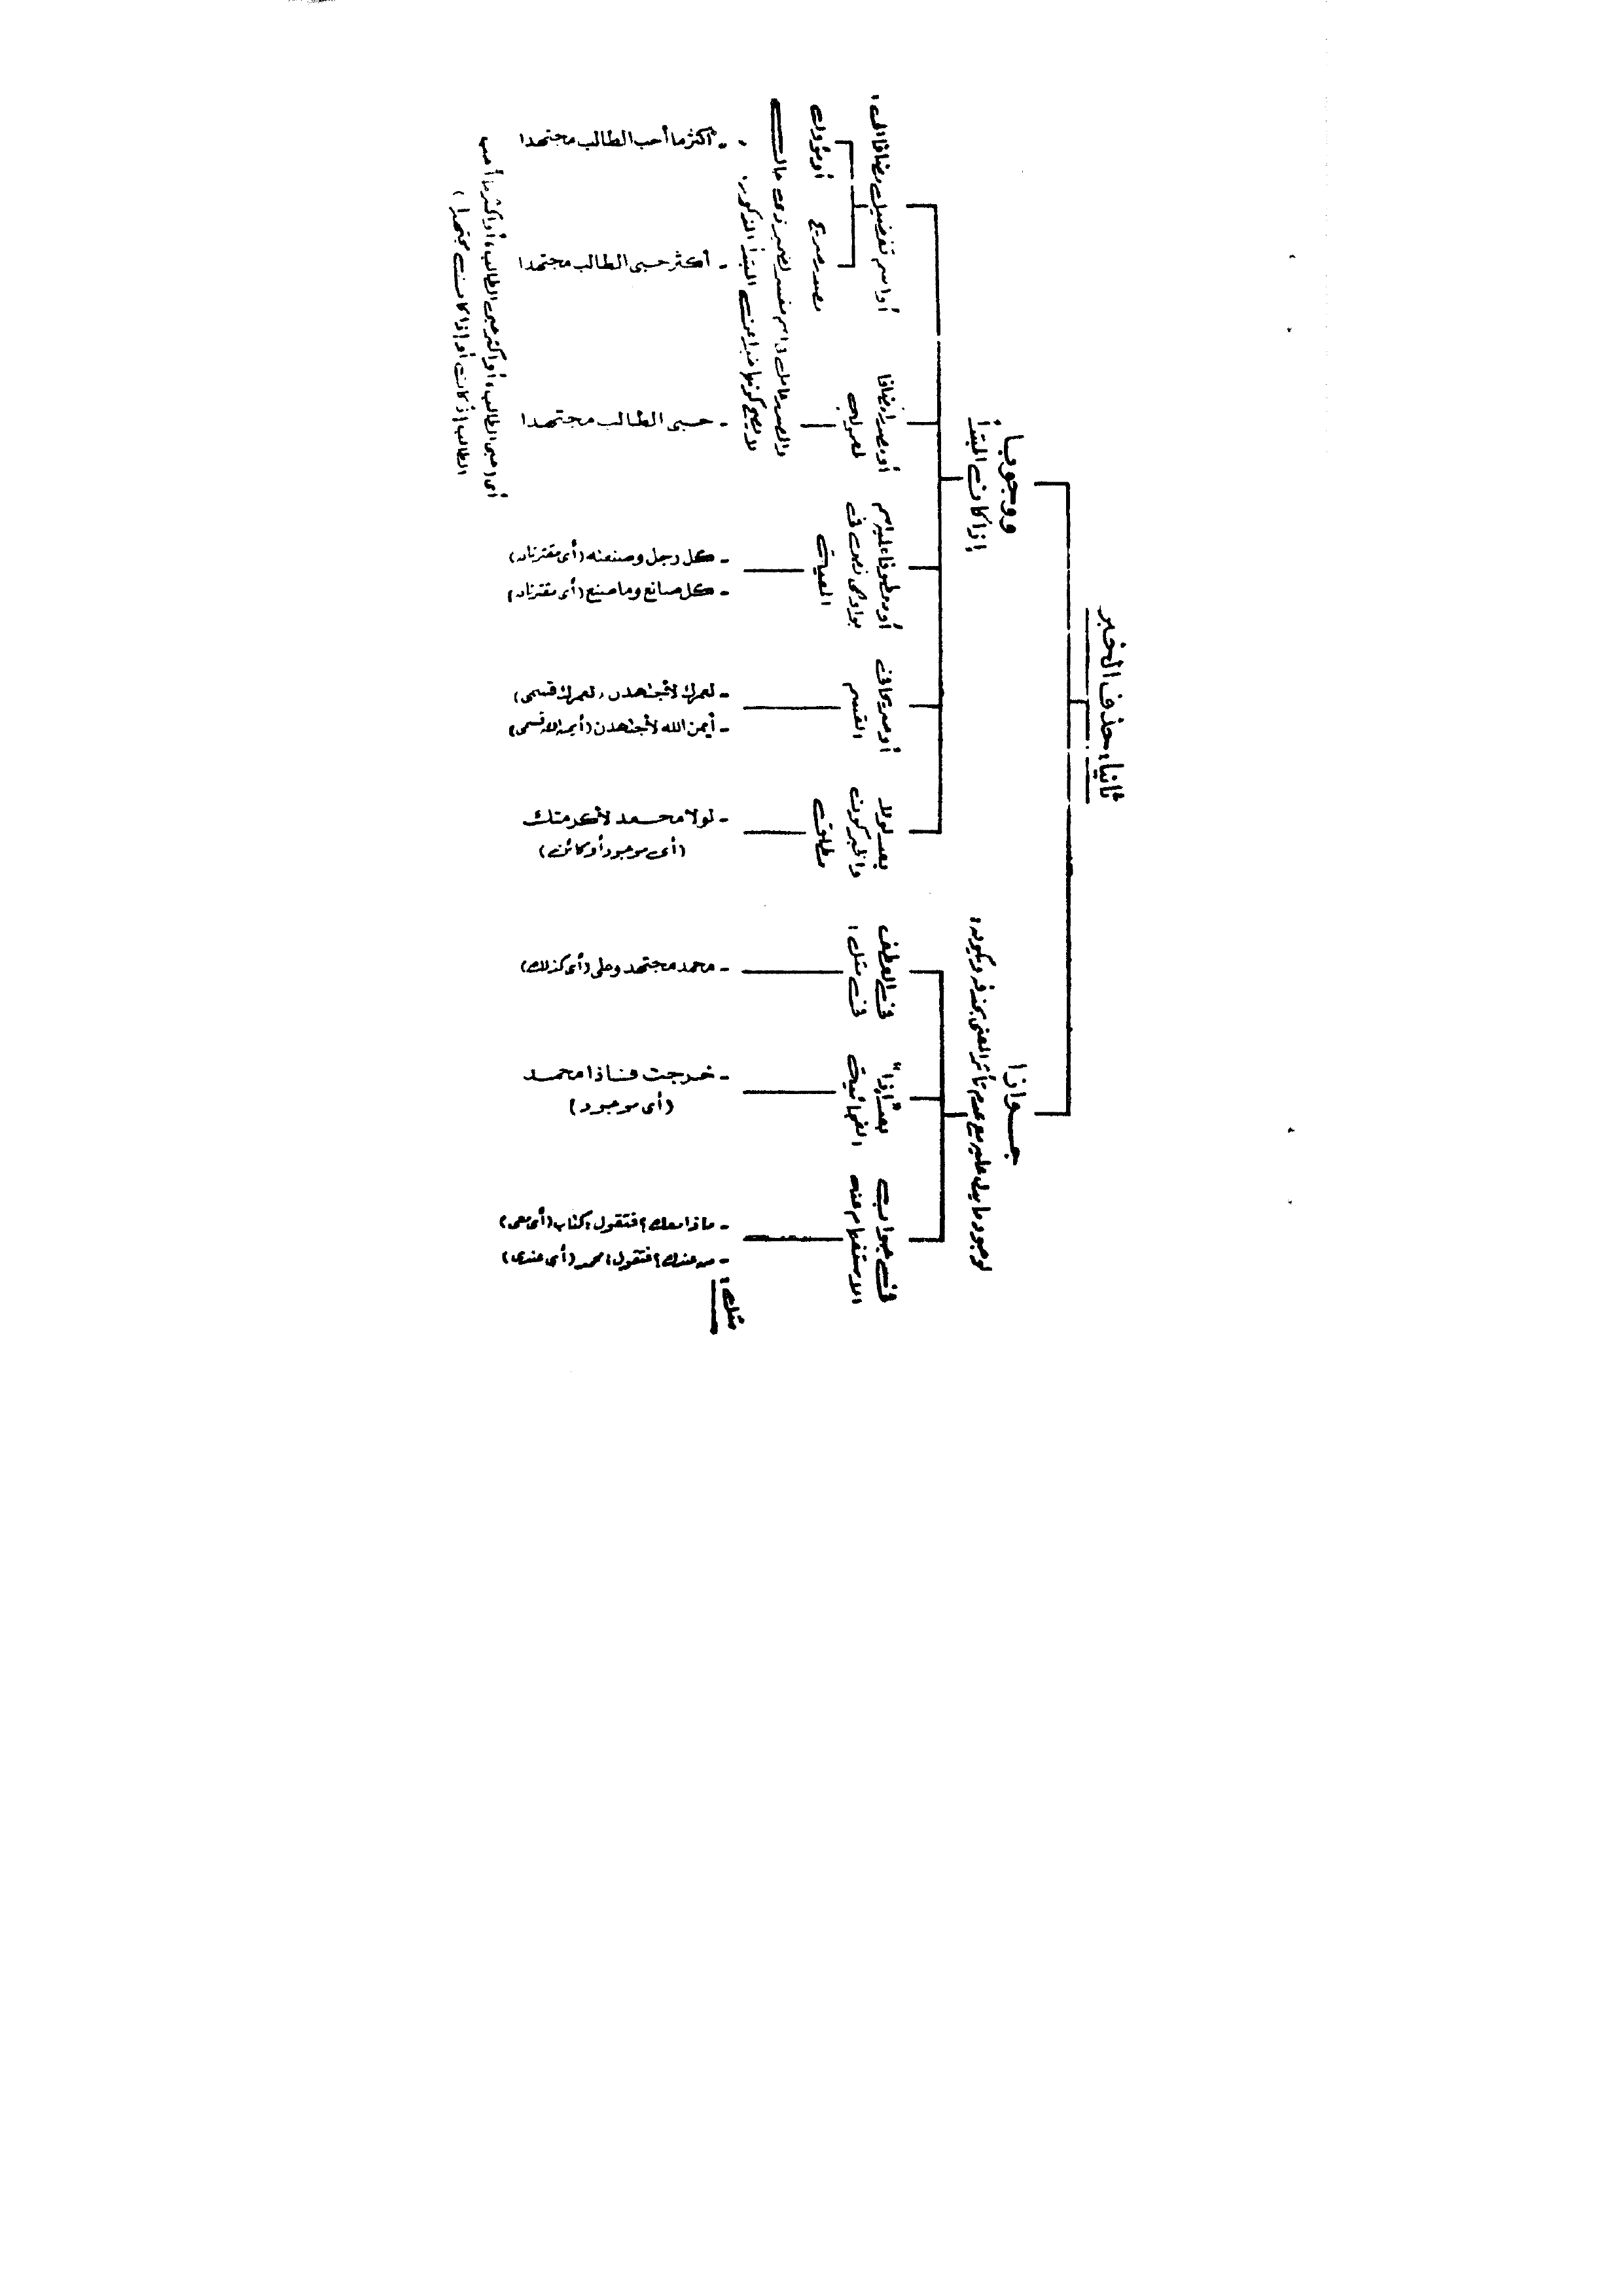 ثانيا، حذف الخبر
جــوازا
لوجود ما يدل عليه مع عدم تأثر المعنى بحذفه ويكون:
في جواب
الاستفهام عنه
مثل:
- ماذا معك؟ فتقول: كتاب (أى معى)
- من عندك؟ فتقول: محمد (أى عندى)
بعد "إذا"
الفجائية
- خرجت فإذا محمد
(أى موجود)
فى العطف
فى مثل:
- محمد مجتهد وعلى (أى كذلك)
ووجوبا
إذا كان المبتدأ
بعد لولا
والخبر كون
مطلق
- لولا محمد لأكرمتك
(أى موجود أو كائن)
أو صريحا فى
القسم
- لعمرك لأجتهدن، لعمرك قسمى)
- أيمن الله لأجتهدن (أيمن الله قسمى)
أو معطوفا عليه اسم
بواو هى نص فى
المعية
- كل رجل وصنعته (أى مقترنان)
- كل صانع وما صنع (أى مقترنان)
أو مصدرا مضافا
لمعموله
- حبى الطالب مجتهدا
أو اسم تفضيل مضافا إلى:
مصدر صريح
- أكثر حبى الطالب مجتهدا
أو مؤول
- أكثر ما أحب الطالب مجتهدا
والمصدر عامل فى اسم مفسر لضمير ذى حال
لا يصح كونها خبرا عن المبتدأ المذكور.
أى (حبى الطالب، أو أكثر حبى الطالب، أو أكثر ما أحب
الطالب إذ كان، أو إذا كان مجتهدا)